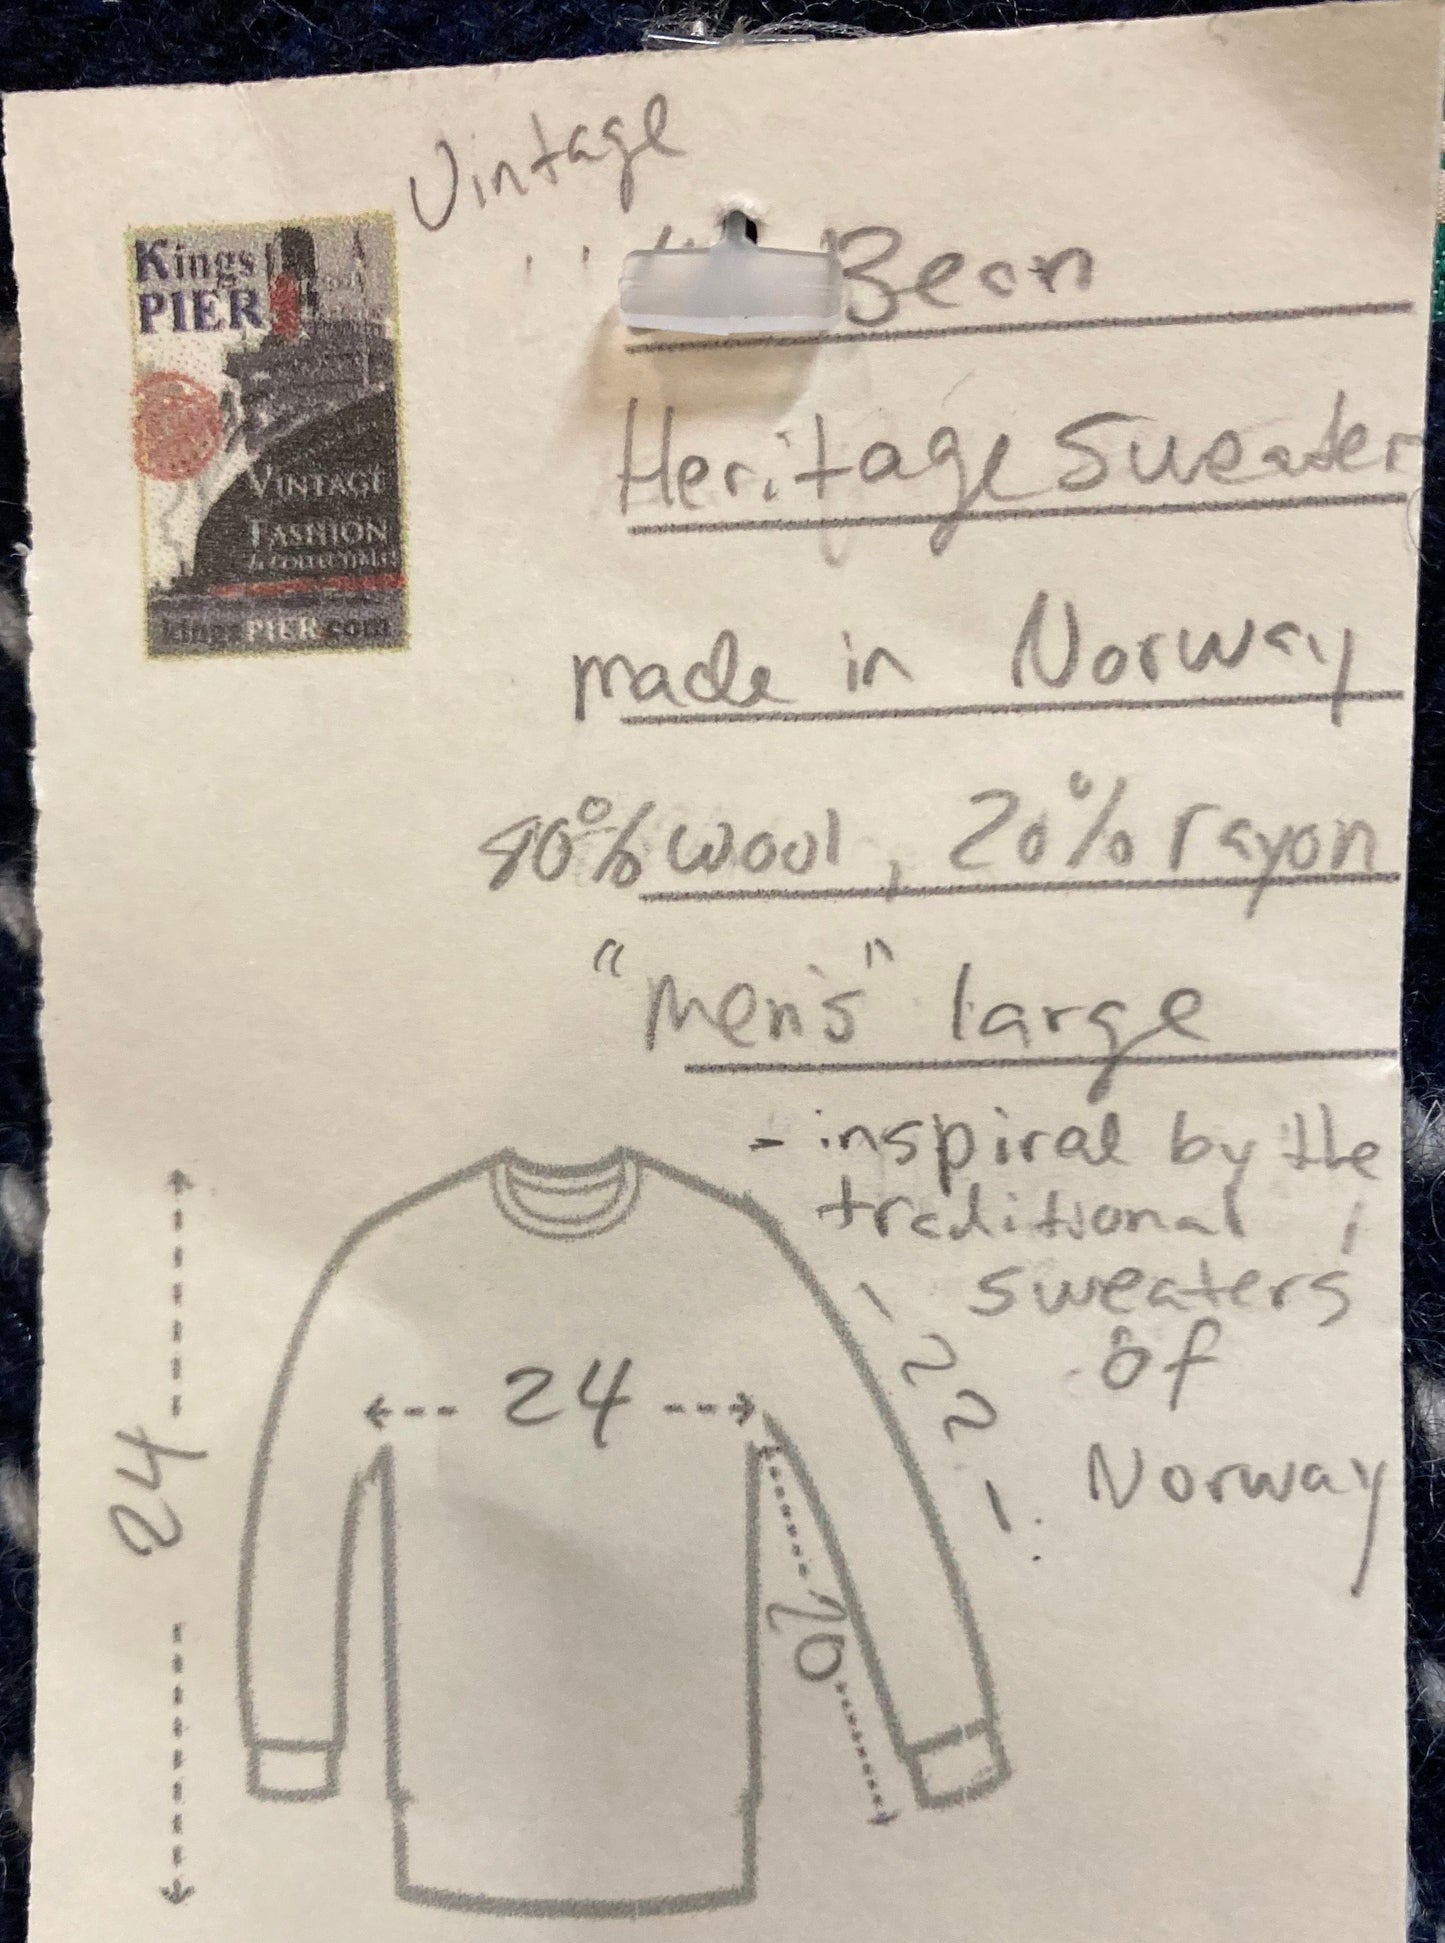 Vintage
Bean
Heritage Sweater
made in Norway
80% wool, 20% rayon
"men's" large
- inspiral by the
traditional
sweaters
of
Norway
Kings
PIER
VINTAGE
FASHION
& COLLECTIBLES
kingsPIER.com
24
24
22
20